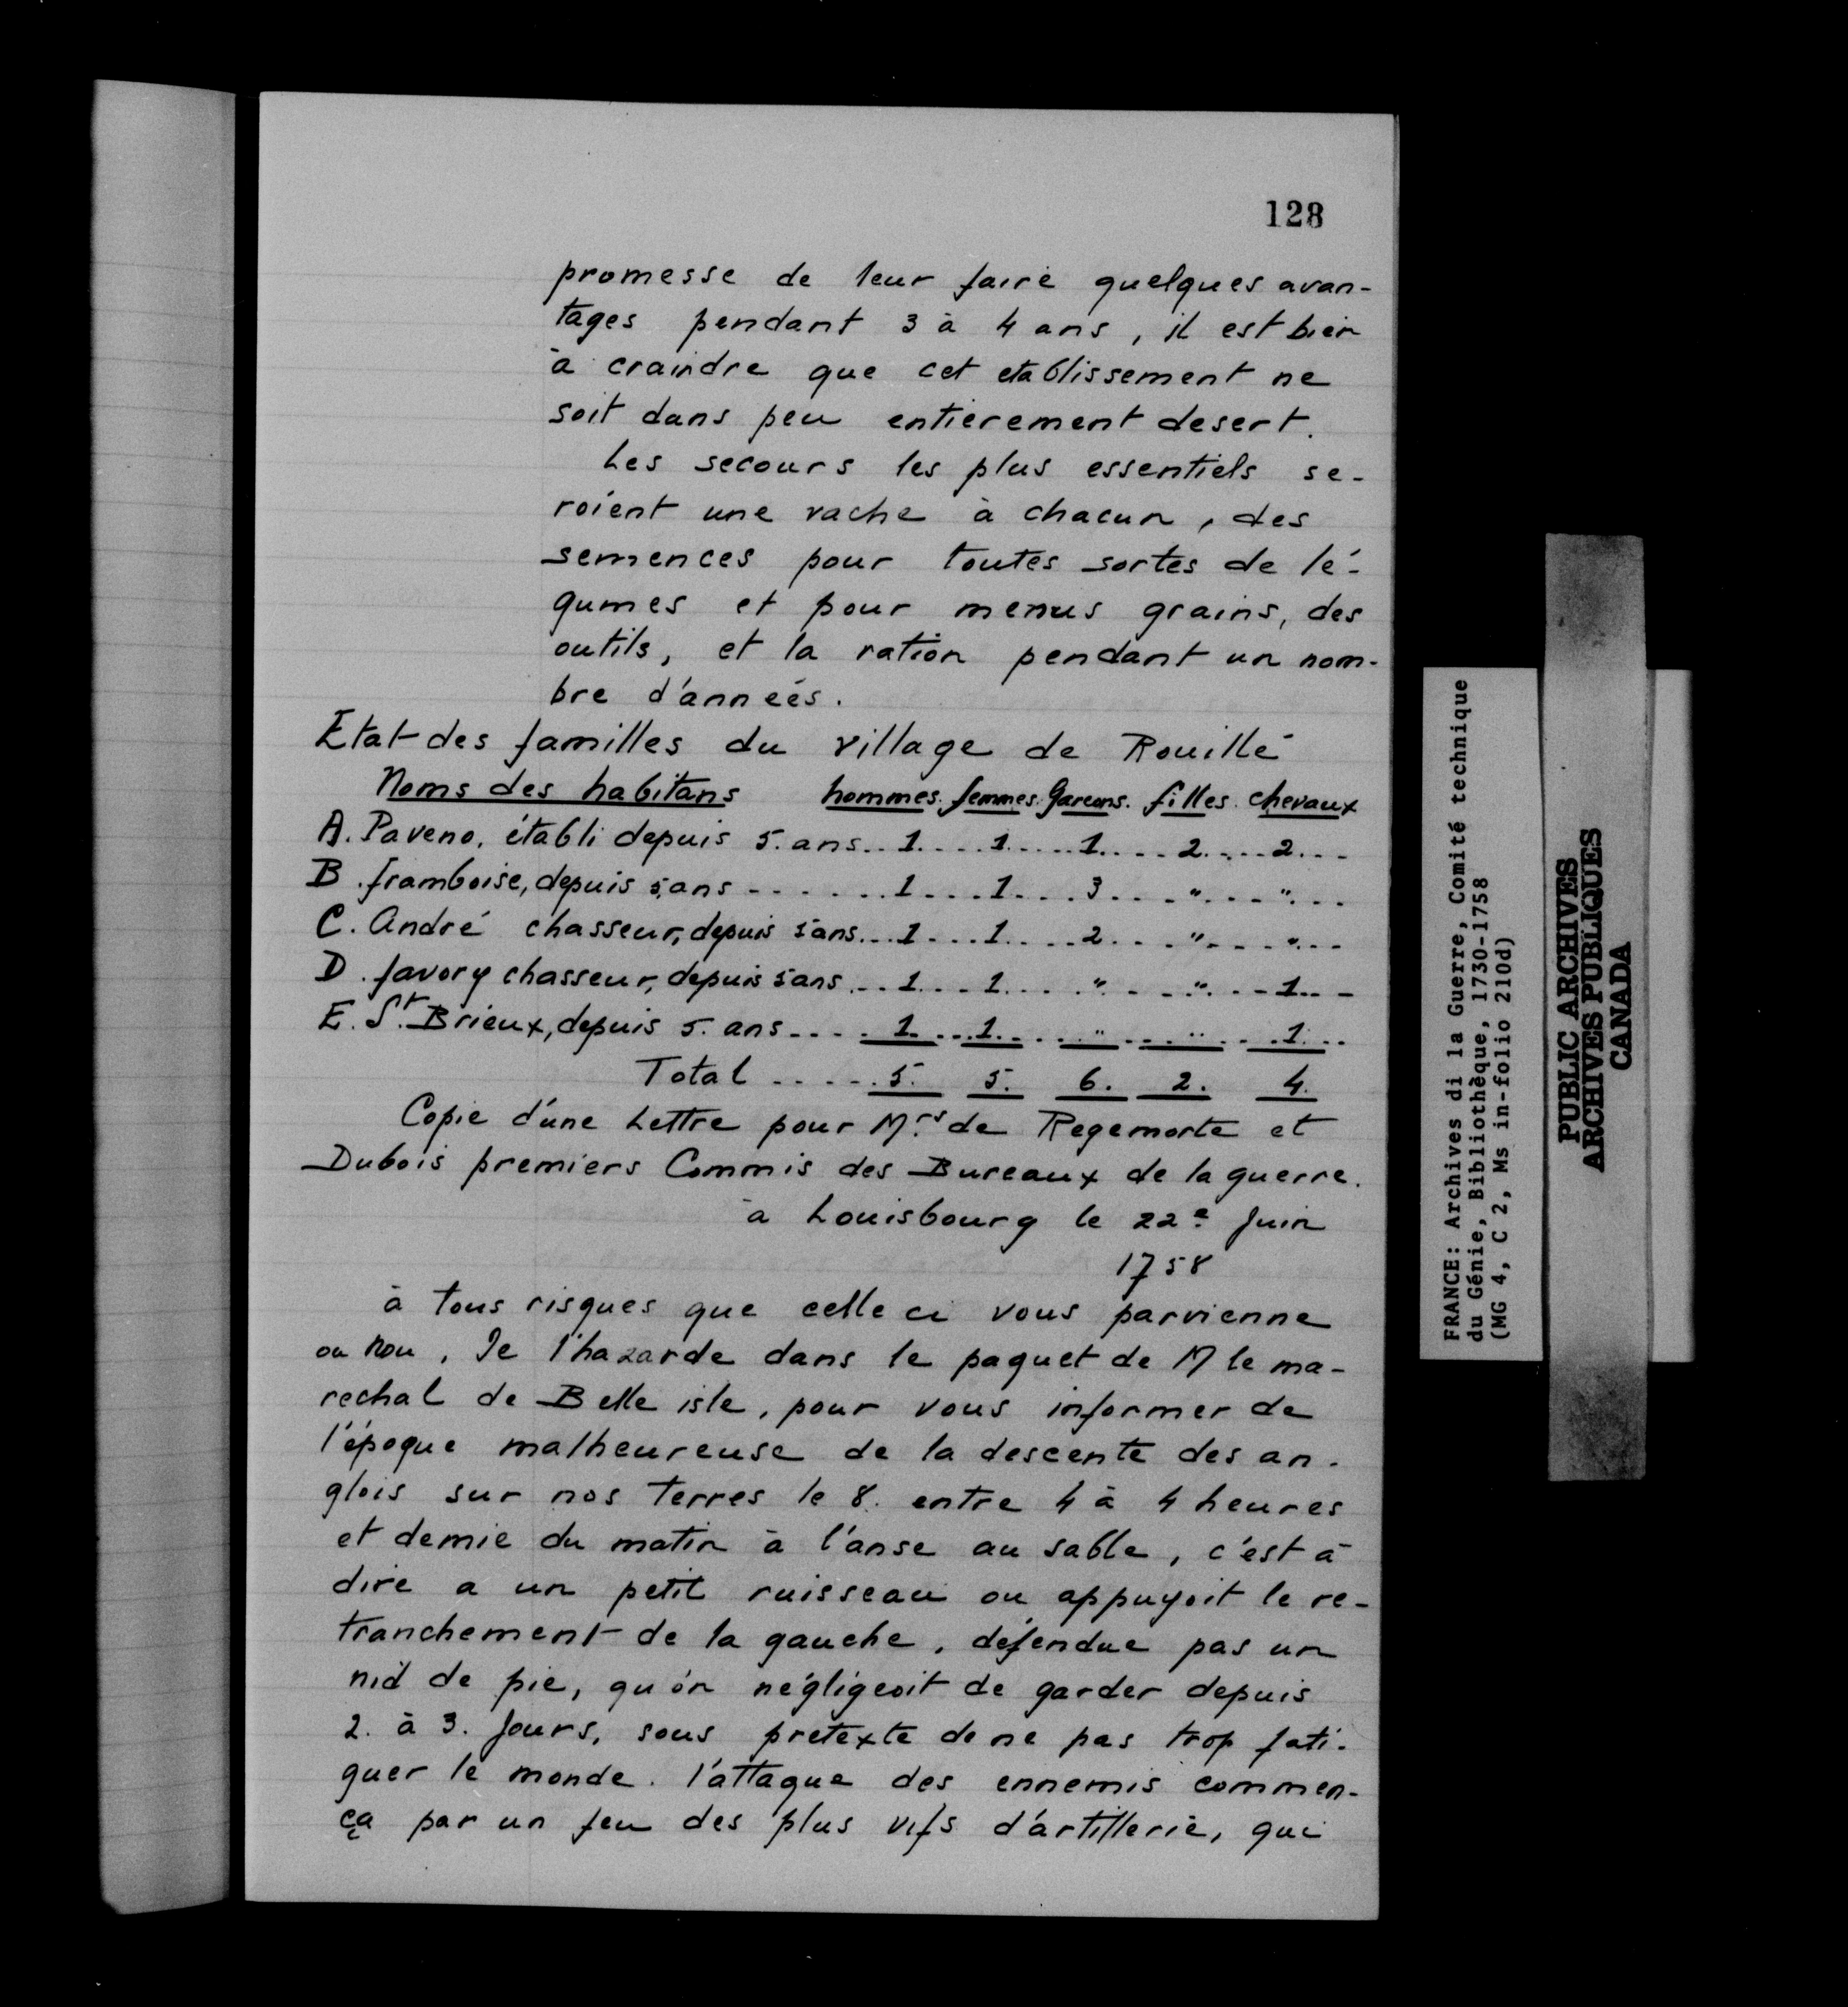 128
promesse de leur faire quelques avan-
tages pendant 3 à 4 ans, il est bien
à craindre que cet etablissement ne
soit dans peu entierement desert.
Les secours les plus essentiels se-
roient une vache à chacun, des
semences pour toutes sortes de lé-
gumes et pour menus grains, des
outils, et la ration pendant un nom-
bre d'anneés.
Etat des familles du village de Rouillé
Noms des habitans hommes. femmes. Garcons. filles. chevaux
A. Paveno, établi depuis 5. ans.. 1.... 1..... 1.... 2.... 2...
B. framboise, depuis 5. ans ------ 1... 1... 3... "... "...
C. André chasseur, depuis 5 ans... 1... 1.... 2... "... "...
D. favory chasseur, depuis 5 ans... 1... 1.... "... "... 1...
E. St. Brieux, depuis 5. ans.... 1... 1.... "... "... 1...
Total ..... 5. 5. 6. 2. 4.
Copie d'une Lettre pour Mrs. de Regemorte et
Dubois premiers Commis des Bureaux de la guerre.
à Louisbourg le 22e Juin
1758
à tous risques que celle ci vous parvienne
ou non, Je l'hazarde dans le paquet de M le ma-
rechal de Belle isle, pour vous informer de
l'époque malheureuse de la descente des an-
glois sur nos terres le 8. entre 4 à 4 heures
et demie du matin à l'anse au sable, c'est à
dire a un petit ruisseau ou appuyoit le re-
tranchement de la gauche, défendue pas un
nid de pie, qu'on négligeoit de garder depuis
2. à 3. Jours, sous pretexte de ne pas trop fati-
guer le monde. l'attaque des ennemis commen-
ça par un feu des plus vifs d'artillerie, qui
FRANCE: Archives di la Guerre, Comité technique
du Génie, Bibliothèque, 1730-1758
(MG 4, C 2, Ms in-folio 210d)
PUBLIC ARCHIVES
ARCHIVES PUBLIQUES
CANADA